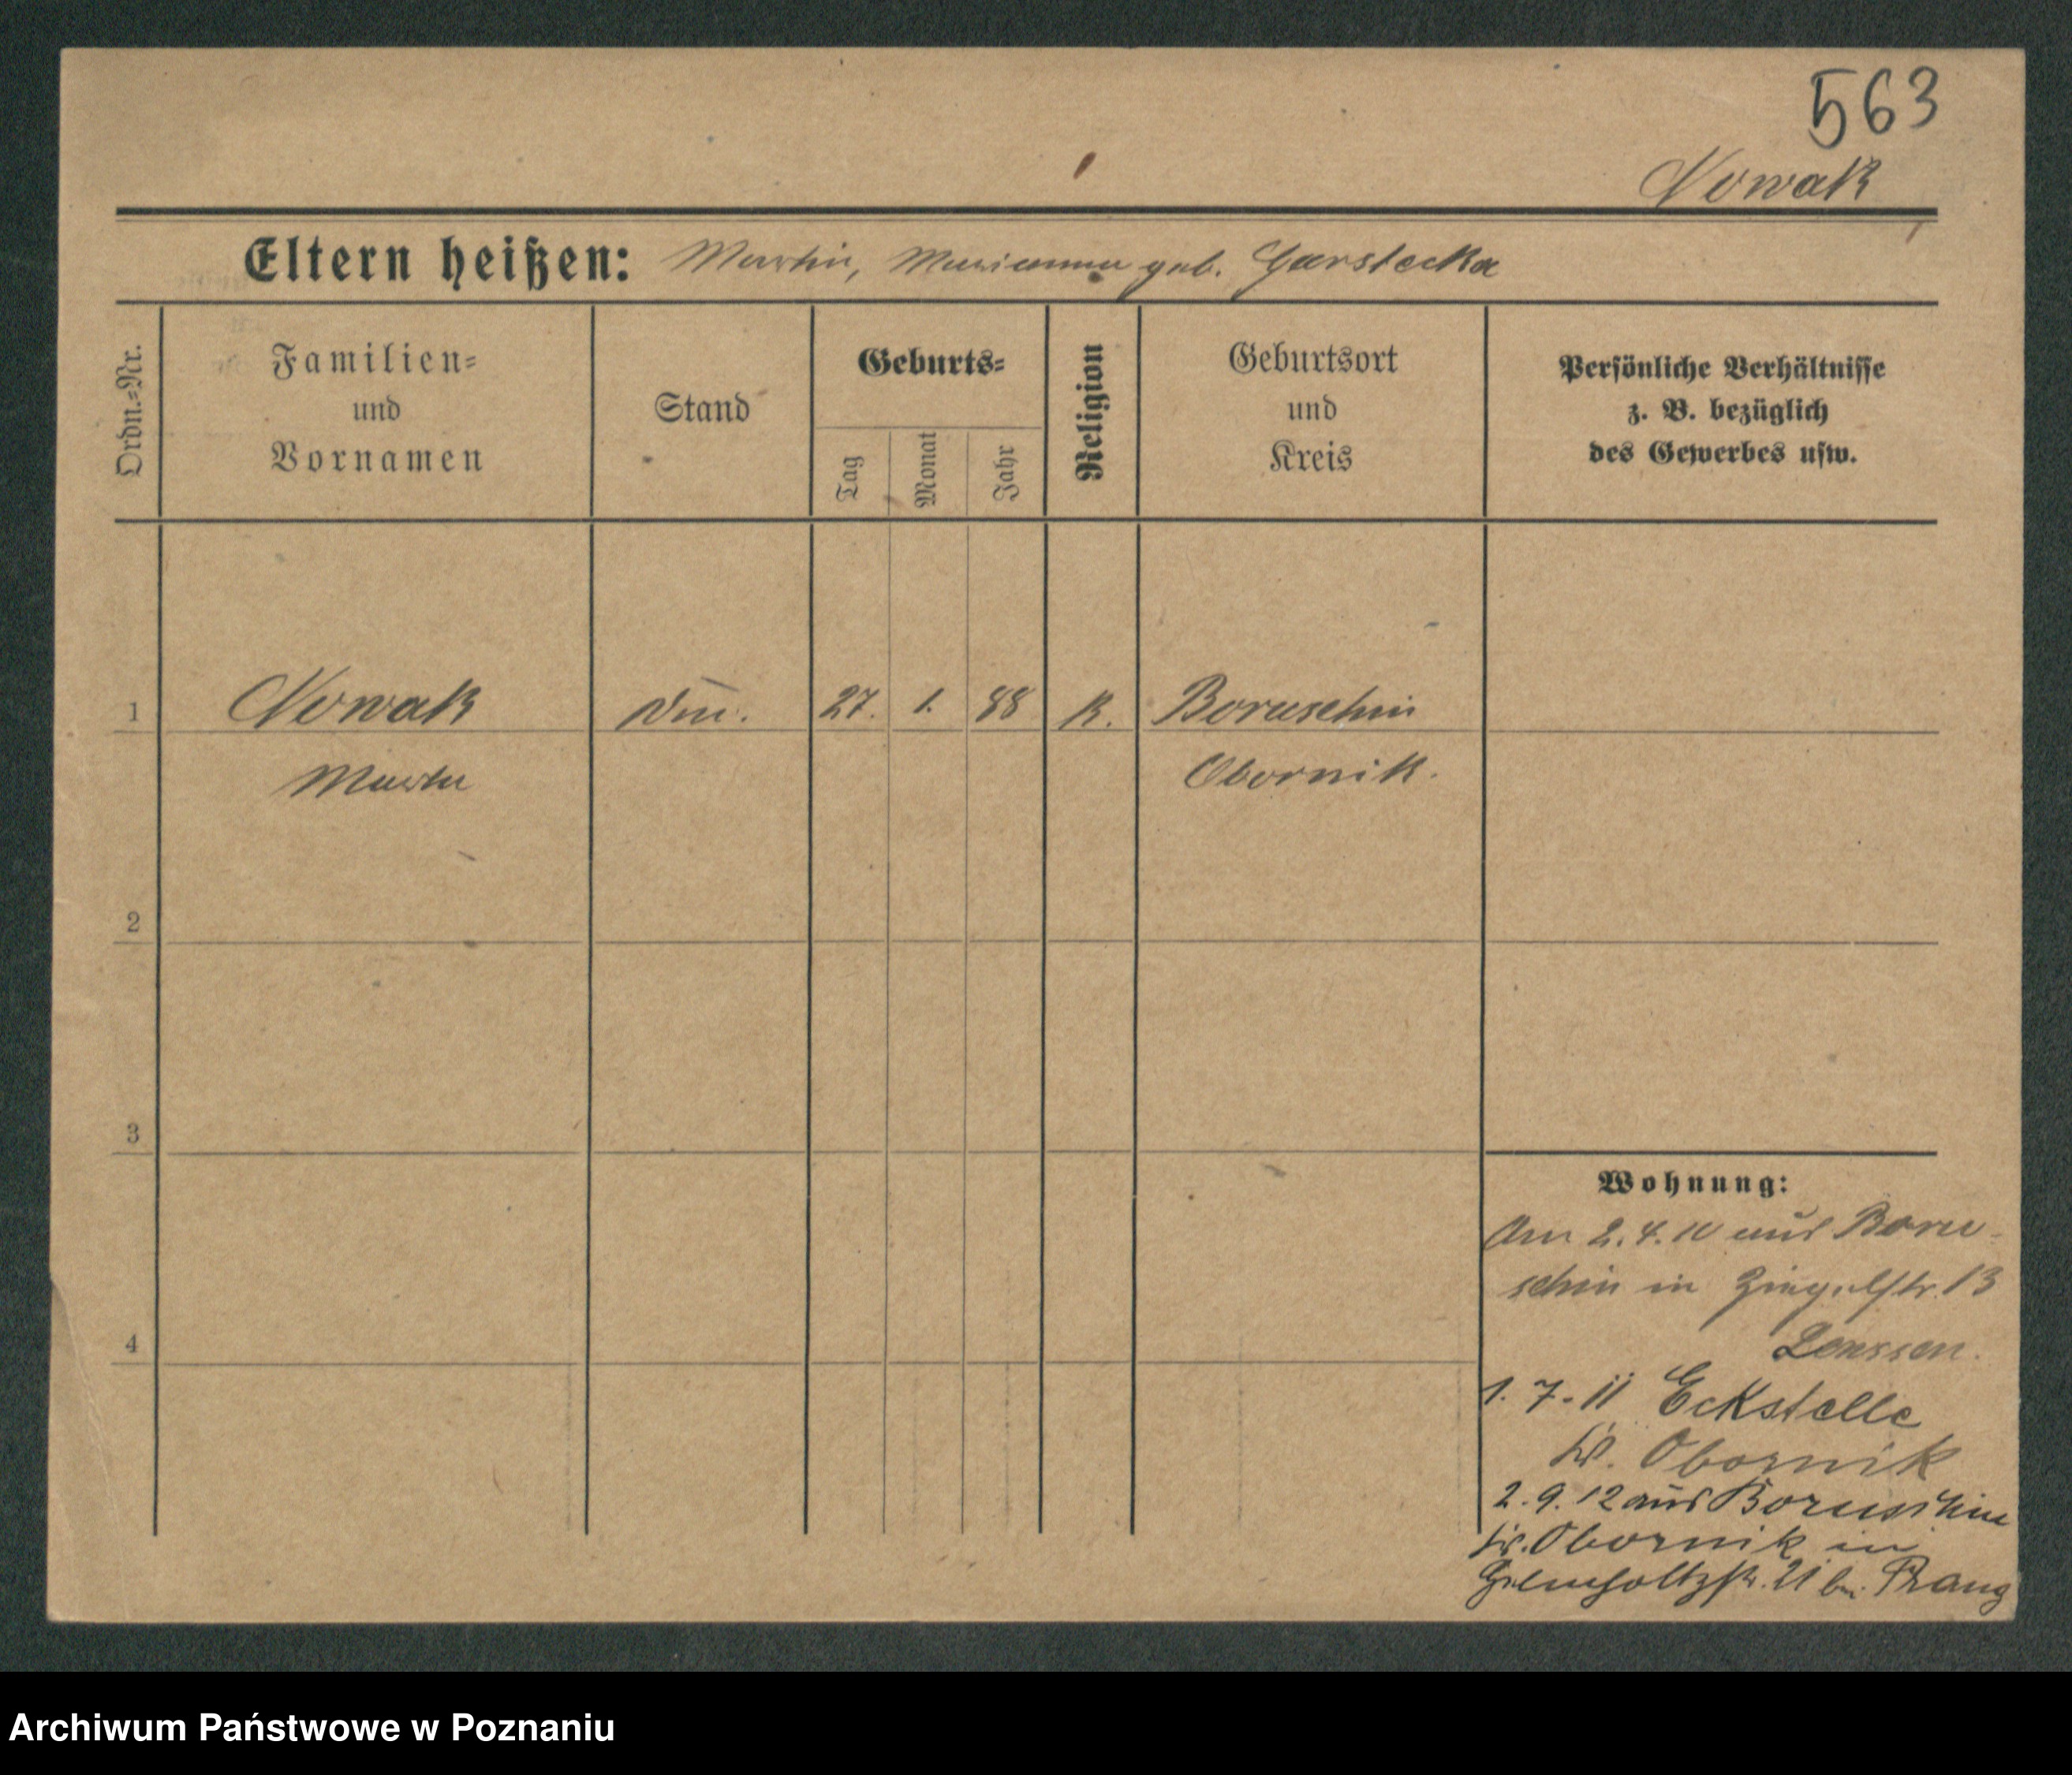 563
Nowak
Eltern heißen: Martin, Marianna geb. Garstecka
Ordn.-Nr.
Familien-
und
Vornamen
Stand
Geburts-
Tag
Monat
Jahr
Religion
Geburtsort
und
Kreis
Persönliche Verhältnisse
z. B. bezüglich
des Gewerbes usw.
1 Nowak 27. 1. 88 K. Boruschin
Obornik.
2
3
4
Wohnung:
Am 2.4.10 aus Boru-
schin in Ziegelstr. 13
1. 7. 11 Eckstelle
Kr. Obornik
2. 9. 12 aus Boruschin
Kr. Obornik in
21 bei
Archiwum Państwowe w Poznaniu